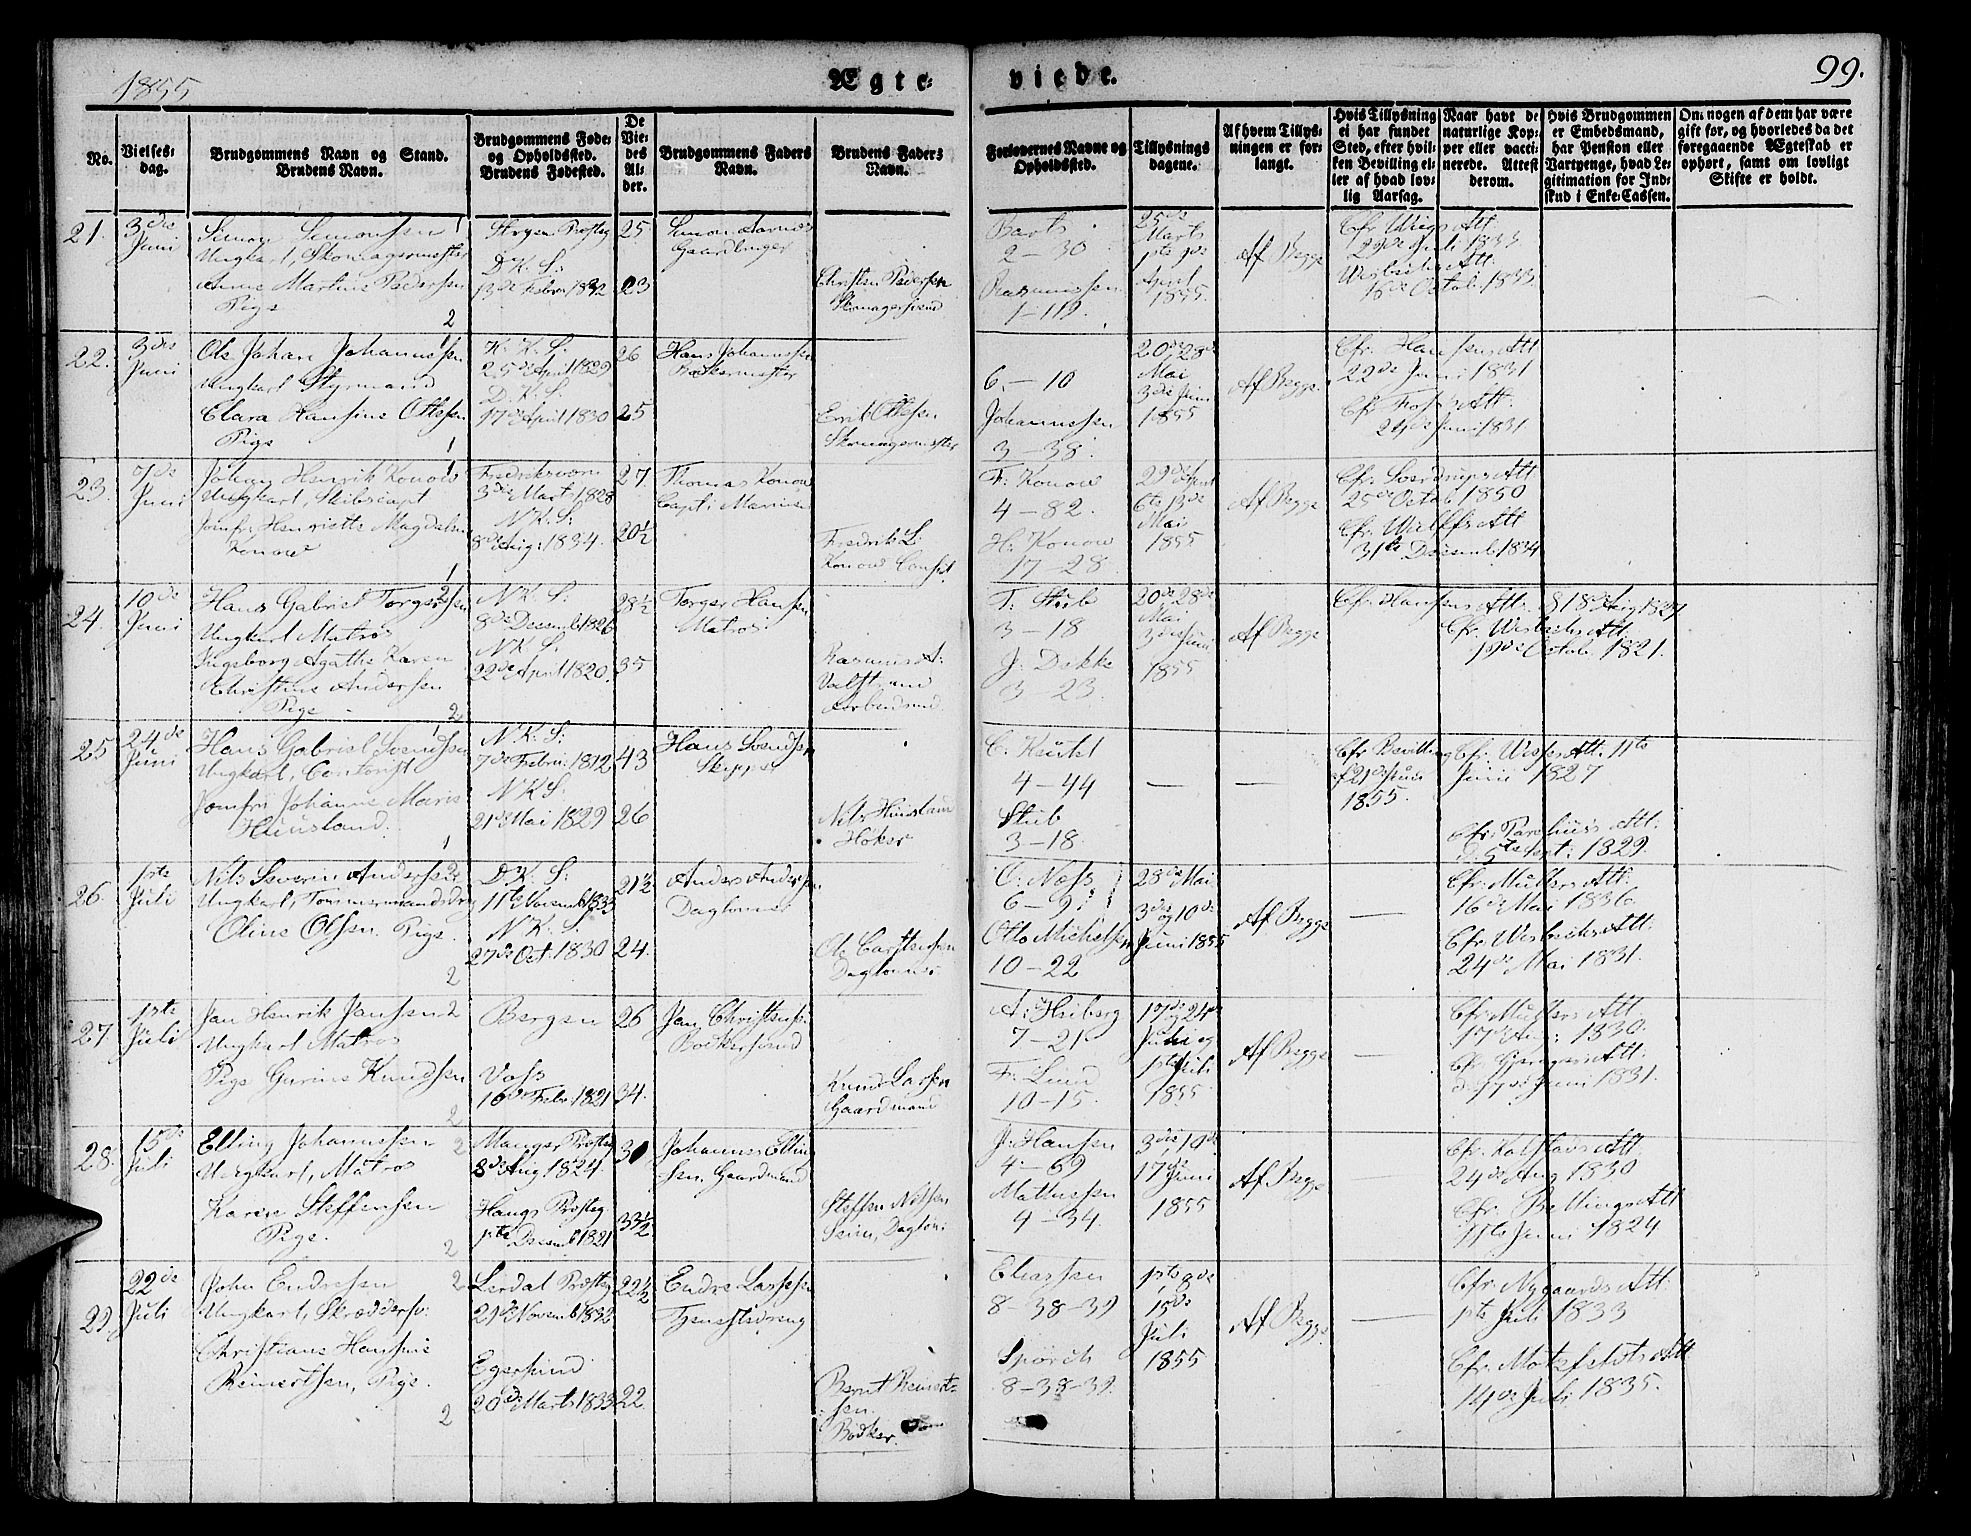 1855
Ægte-
viede.
99.
No.
Vielses-
dag.
Brudgommens Navn og Stand.
Brudens Navn.
Brudgommens Føde-
og Opholdssted.
Brudens Fødested.
De
Vie-
des
Al-
der.
Brudgommens Faders
Navn.
Brudens Faders
Navn.
Forlovernes Navne og
Opholdssted.
Tillysnings
dagene.
Af hvem Tillys-
ningen er for-
langt.
Hvis Tillysning
ei har fundet
Sted, efter hvil-
ken Bevilling el-
ler af hvad lov-
lig Aarsag.
Naar havt de
naturlige Kop-
per eller vacci-
nerede. Attest
derom.
Hvis Brudgommen
er Embedsmand,
har Pension eller
Vartpenge, hvad Le-
gitimation for Ind-
skud i Enke-Cassen.
Om nogen af dem har være
gift før, og hvorledes da det
foregaaende Ægteskab er
ophørt, samt om lovligt
Skifte er holdt.
21.
3die
Juni
Simon Simonsen 1
Ungkarl, Skomagermester
Anne Martine Pedersen
Pige 2
D. K. S:
13de Febr: 1832
25
23
Simon Aarnes
Christen Pedersen
Skomagersvend
2-30
Rasmussen
1-119.
25de
Marts
1ste 9de
April
1855.
Af Begge
22de Juli 1833
Wesbechs Att.
18de Octob. 1833.
22.
3die
Juni
Ole Johan Johannessen 1
Ungkarl Styrmand
Clara Hansine Ottesen
Pige 1
N. K. S:
25de April 1829
D. K. S.
17de April 1830
26
25
Hans Johannessen
Bødkermester
Erik Ottesen
Skomagermester
6.-10
Johannessen
3-38.
20de, 28de
Mai
3die Juni
1855
Af Begge
Cfr. Hansens Att
22de Juni 1831
Cfr Foss's Att.
24de Juni 1831
23.
7de
Juni
Johan Henrik Konow 1
Ungkarl, Skibscapt
Jomfr: Henriette Magdalene
Konow 1
Fredriksværn
3die Mart: 1828
N. K. S:
8de Aug: 1834.
27
20½
Thomas Konow
Capt: i Marinen
Fredrik L.
Konow Consul
F. Konow
4-82.
H. Konow
17-28.
29de April
6te 13de
Mai
1855
Af Begge
Cfr. Sverdrups Att
25de Octob 1850
Cfr. Wulffs Att
31te Decemb. 1834
24.
10de
Juni
Hans Gabriel Torgersen 2
Ungkarl Matros
Ingeborg Agathe Karen
Christine Andersen
Pige 2
N. K. S:
8de Decemb. 1826
N. K. S.
22de April 1820.
28½
35
Torger Hansen
Matros
Rasmus A:
Arbeidsmd.
T: Stub
3-18
J. Dekke
3-23.
20de 28de
Mai
3die Juni
1855
Af Begge
Cfr. Hansens Att. 18de Aug 1827
Cfr. Wesbechs Att.
19de Octob. 1821.
25
24de
Juni
Hans Gabriel Svendsen 1
Ungkarl, Contorist
Jomfr: Johanne Marie
Huusland. 1
N. K. S:
7de Febru: 1812
N K S:
21de Mai 1829
43
26
Hans Svendsen
Skipper
Nils Huusland
Høker
4-44
Stub
3-18.
Cfr Bevilling
af 21de Juni
1855.
11te
Juni 1827
5te Sept: 1829.
26.
1ste
Juli
Nils Severin Andersen 2
Ungkarl, Tømmermandsdrg
Oline Olsen. Pige. 2
D. K. S:
11te Novemb. 1833
N. K. S:
27de Oct. 1830
21½
24.
Anders Andersen
Daglønner
Ole Carstensen
Daglønner
O: Næss
6-9:
Otto Michelsen
10-22
28de Mai
3die og 10de
Juni 1855
Af Begge
Cfr: Müllers Att:
16de Mai 1836.
Cfr: Wesbechs Att:
24de Mai 1831.
27.
1ste
Juli
Jan Henrik Jansen 2
Ungkarl Matros
Pige Gurine Knudsen
2
Bergen
Voss
16de Febr: 1821
26
34.
Jan Christensen
Bødkersvend
Knud Larsen
Gaardmand
A. Heiberg
7-21
F. Lund
10-15.
17de 24de
Juni og
1ste Juli
1855
Af Begge
Cfr Müllers Att.
17de Aug: 1830.
d. 17de Juni 1831.
28.
15de
Juli
Elling Johannessen 2
Ungkarl, Matros
Karen Steffensen
Pige. 2
Manger Prsteg
8de Aug 1824.
Haugs Prsteg
1ste Decemb. 1821
30
33½
Johannes Ellin
sen, Gaardmand
Steffen Nilsen
J. Hansen
4-69
Mathiessen
4-34.
3die, 10de
17de Juni
1855
Af Begge
24de Aug 1830
Cfr. Bellings Att
11te Juni 1824
29.
22de
Juli
John Endresen 2
Ungkarl, Skreddersv:
Christiane Hansine
Reinertsen, Pige. 2
Lerdal Prsteg
29de Novemb. 1832
Egersund
20de Marts 1833
22½
22.
Endre Larsen
Tjenestedreng
Bernt Reinert-
sen.
Bødker.
Eliassen
8-38-39
Spørck
8-38-39.
1ste, 8de
15de
Juli
1855
Af Begge
Cfr. Nygaards Att:
1ste Juli 1833
14de Juli 1835.